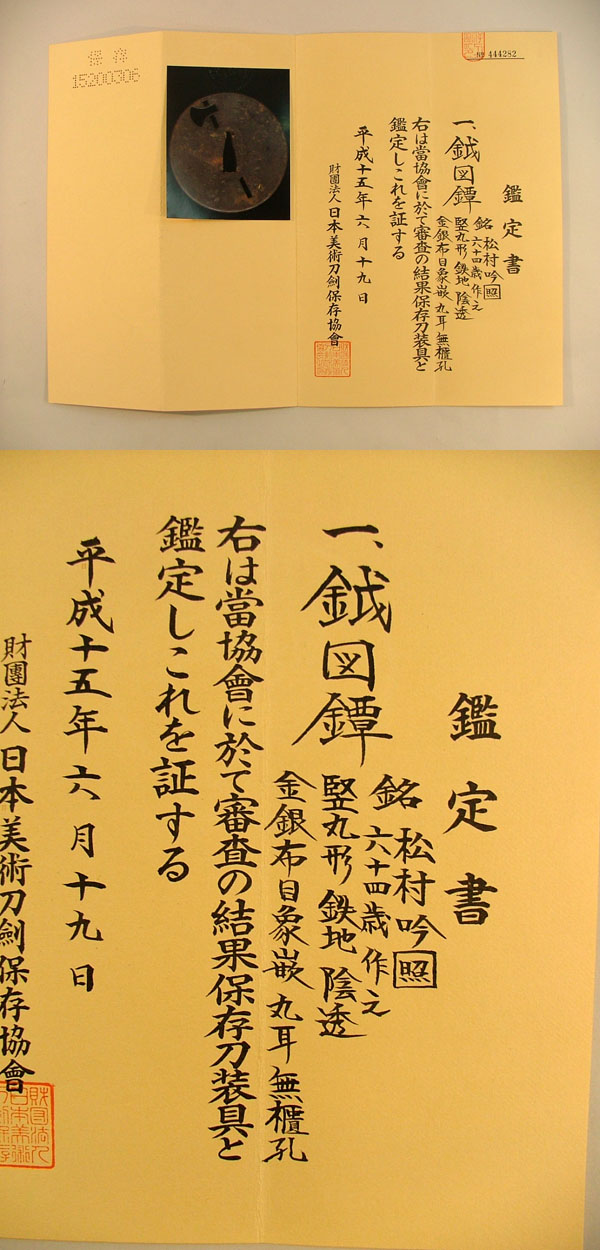 保存
15200306
№ 444282
鑑定書
一、鉞図鐔
銘 松村吟照
六十四歳作之
竪丸形 鉄地 陰透
金銀布目象嵌 丸耳 無櫃孔
右は當協會に於て審査の結果保存刀装具と
鑑定しこれを証する
平成十五年六月十九日
財團法人日本美術刀劍保存協會
鑑定書
一、鉞図鐔
銘 松村吟照
六十四歳作之
竪丸形 鉄地 陰透
金銀布目象嵌 丸耳 無櫃孔
右は當協會に於て審査の結果保存刀装具と
鑑定しこれを証する
平成十五年六月十九日
財團法人日本美術刀劍保存協會